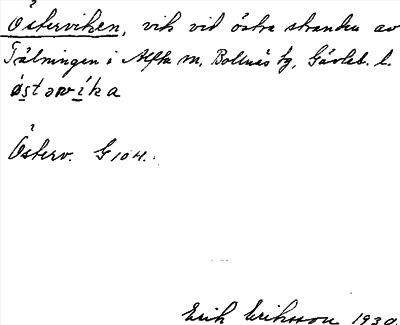 Österviken, vik vid östra stranden av
Tälningen i Alfta sn, Bollnäs tg, Gävleb. l.
östərvíka
Österv. G 104.
Erik Eriksson 1930